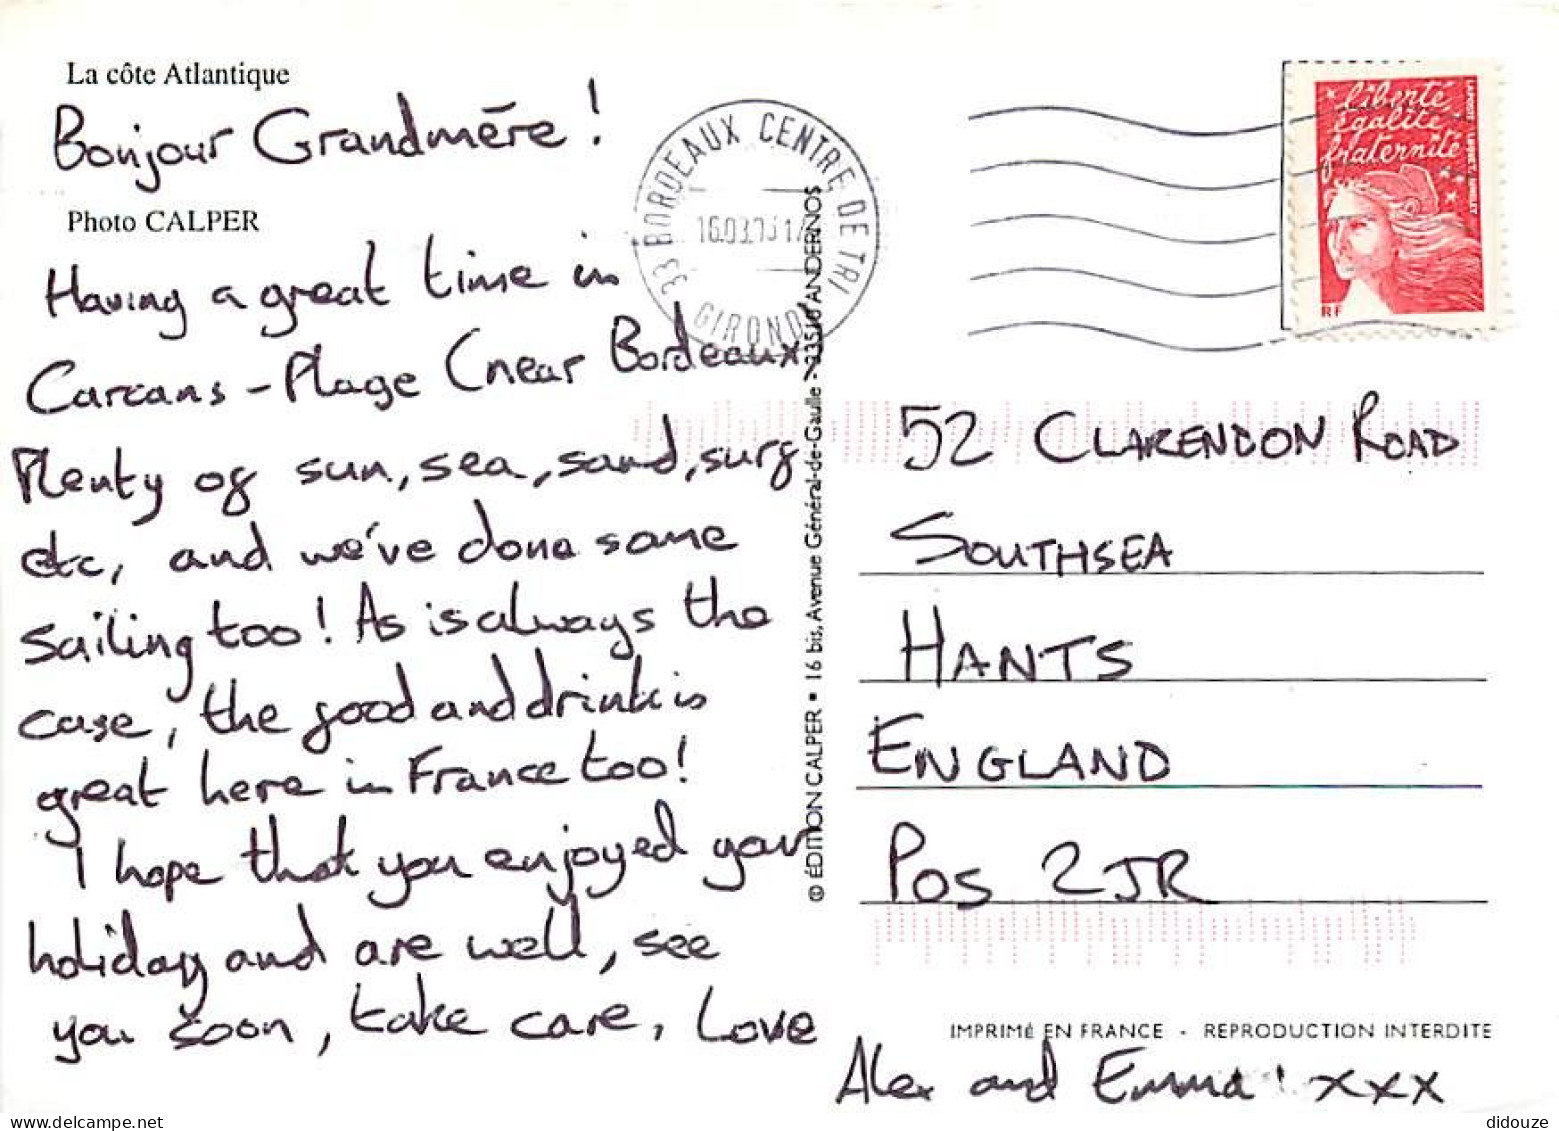 La côte Atlantique
Bonjour Grandmēre!
Photo CALPER
Having a great time in
Carcans-Plage (near Bordeaux)
Plenty of sun, sea, sand, surf
etc, and we've done some
sailing too! As is always the
case, the food and drink is
great here in France too!
I hope that you enjoyed your
holiday and are well, see
you soon, take care, Love
Alex and Emma! xxx
33 BORDEAUX CENTRE DE TRI
GIRONDE
liberté
égalité
fraternité
RF
© ÉDITION CALPER • 16 bis, Avenue Général-de-Gaulle - 33510 ANDERNOS
52 CLARENDON ROAD
SOUTHSEA
HANTS
ENGLAND
POS 2JR
IMPRIMÉ EN FRANCE - REPRODUCTION INTERDITE
didouze